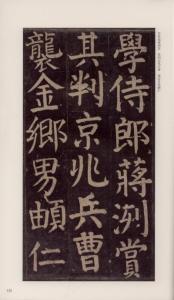 學侍郎蔣洌賞
其判京兆兵曹
襲金鄉男頔仁